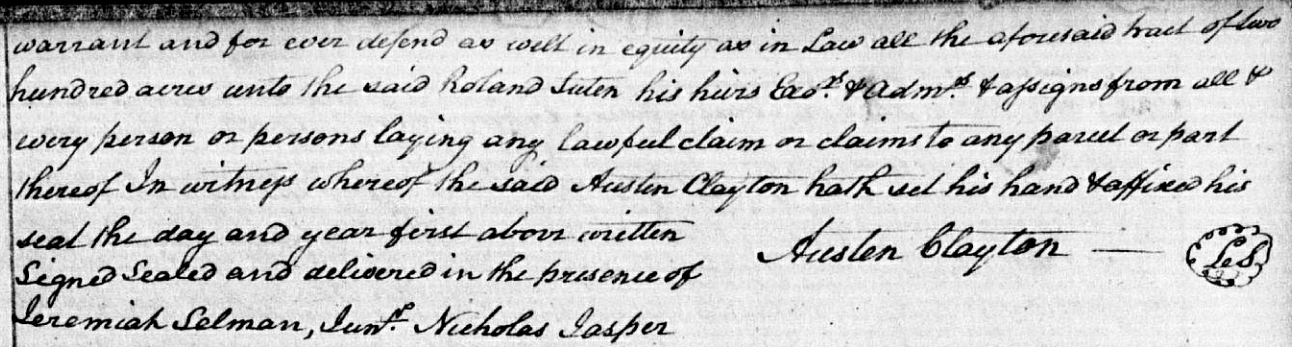 warrant and for ever defend as well in equity as in Law all the aforesaid tract of two
hundred acres unto the said Roland Suten his heirs Exo.rs & Adm.rs & assigns from all &
every person or persons laying any lawful claim or claims to any parcel or part
thereof In witness whereof the said Austen Clayton hath set his hand & affixed his
seal the day and year first above written
Austen Clayton — LeS
Signed Sealed and delivered in the presence of
Jeremiah Selman, Junr. Nicholas Jasper